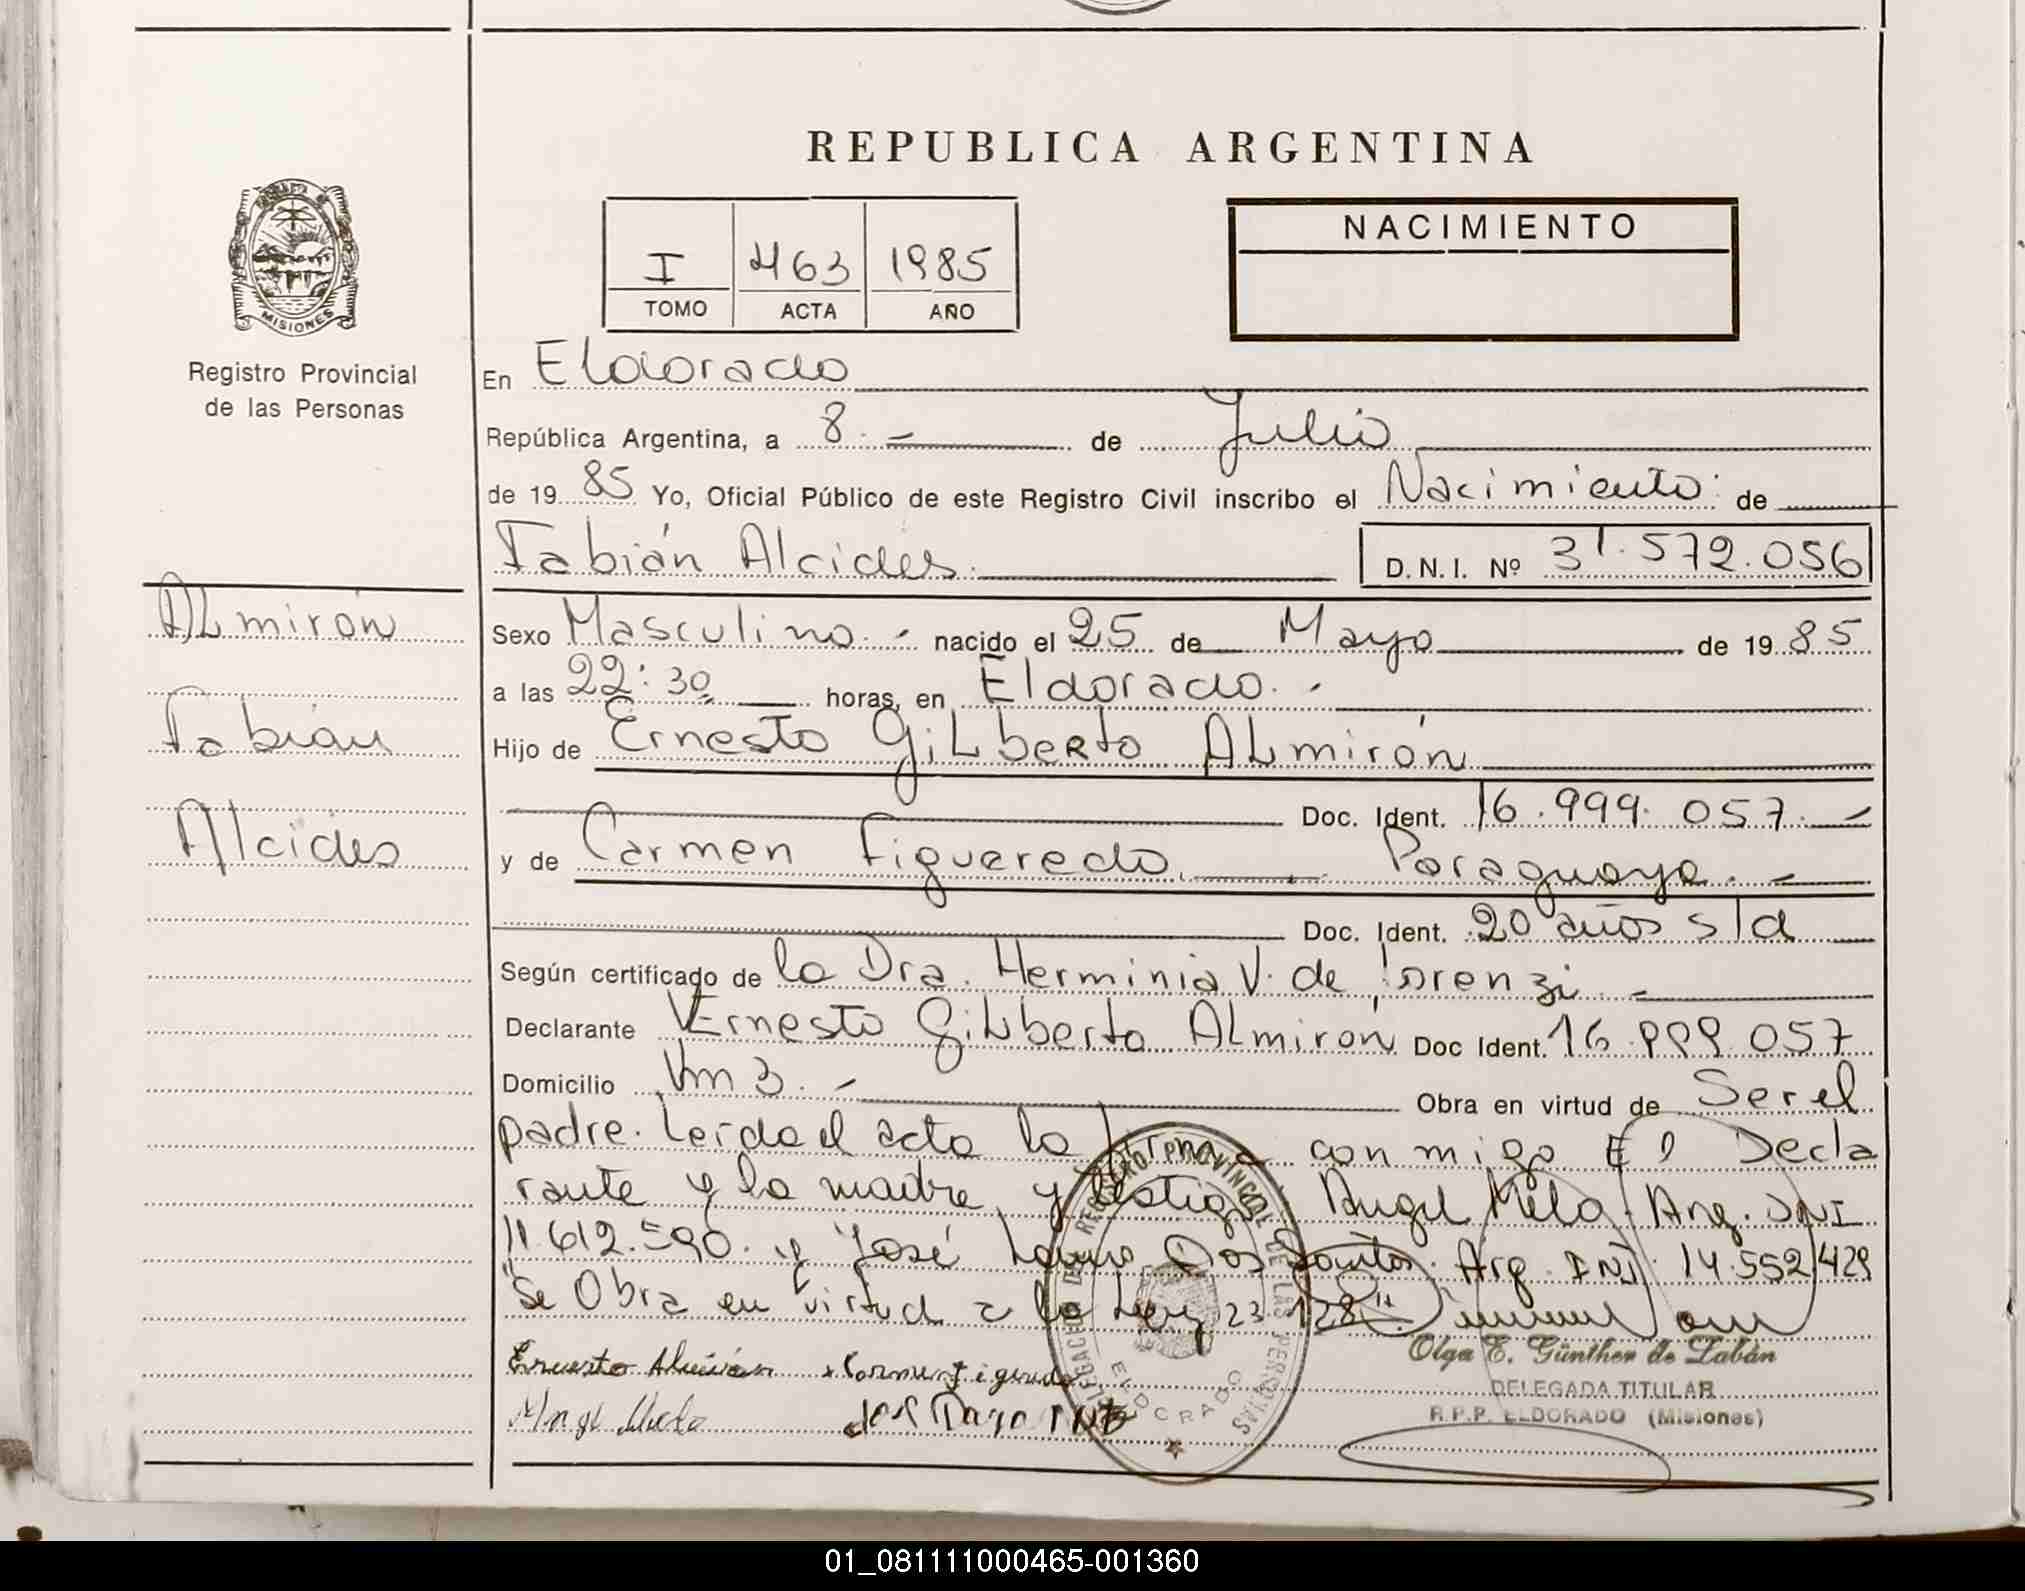 REPUBLICA ARGENTINA
MISIONES
Registro Provincial
de las Personas
I 463 1985
TOMO ACTA AÑO
NACIMIENTO
En Eldorado
República Argentina, a 8.- de Julio
de 19 85 Yo, Oficial Público de este Registro Civil inscribo el Nacimiento de
Fabián Alcides.
D.N.I. Nº 31.572.056
Almirón
Fabián
Alcides
Sexo Masculino.- nacido el 25 de Mayo de 19 85
a las 22:30 horas, en Eldorado.-
Hijo de Ernesto Gilberto Almirón
Doc. Ident. 16.999.057.-
y de Carmen Figueredo. Paraguaya.-
Doc. Ident. 20 años s/d
Según certificado de la Dra. Herminia V. de Lorenzi.-
Declarante Ernesto Gilberto Almirón Doc Ident. 16.999.057
Domicilio Km 3.- Obra en virtud de Ser el
padre. Leída el acta la firma conmigo El Decla
rante y la madre y testigo Angel Melo. Arg. DNI
11.612.590. y José Dos Santos. Arg. DNI. 14.552.429
"Se Obra en virtud a la Ley 23.128".
Ernesto Almirón
Olga E. Günther de Zabán
DELEGADA TITULAR
R.P.P. ELDORADO (Misiones)
REGISTRO PROVINCIAL DE LAS PERSONAS
ELDORADO
01_081111000465-001360